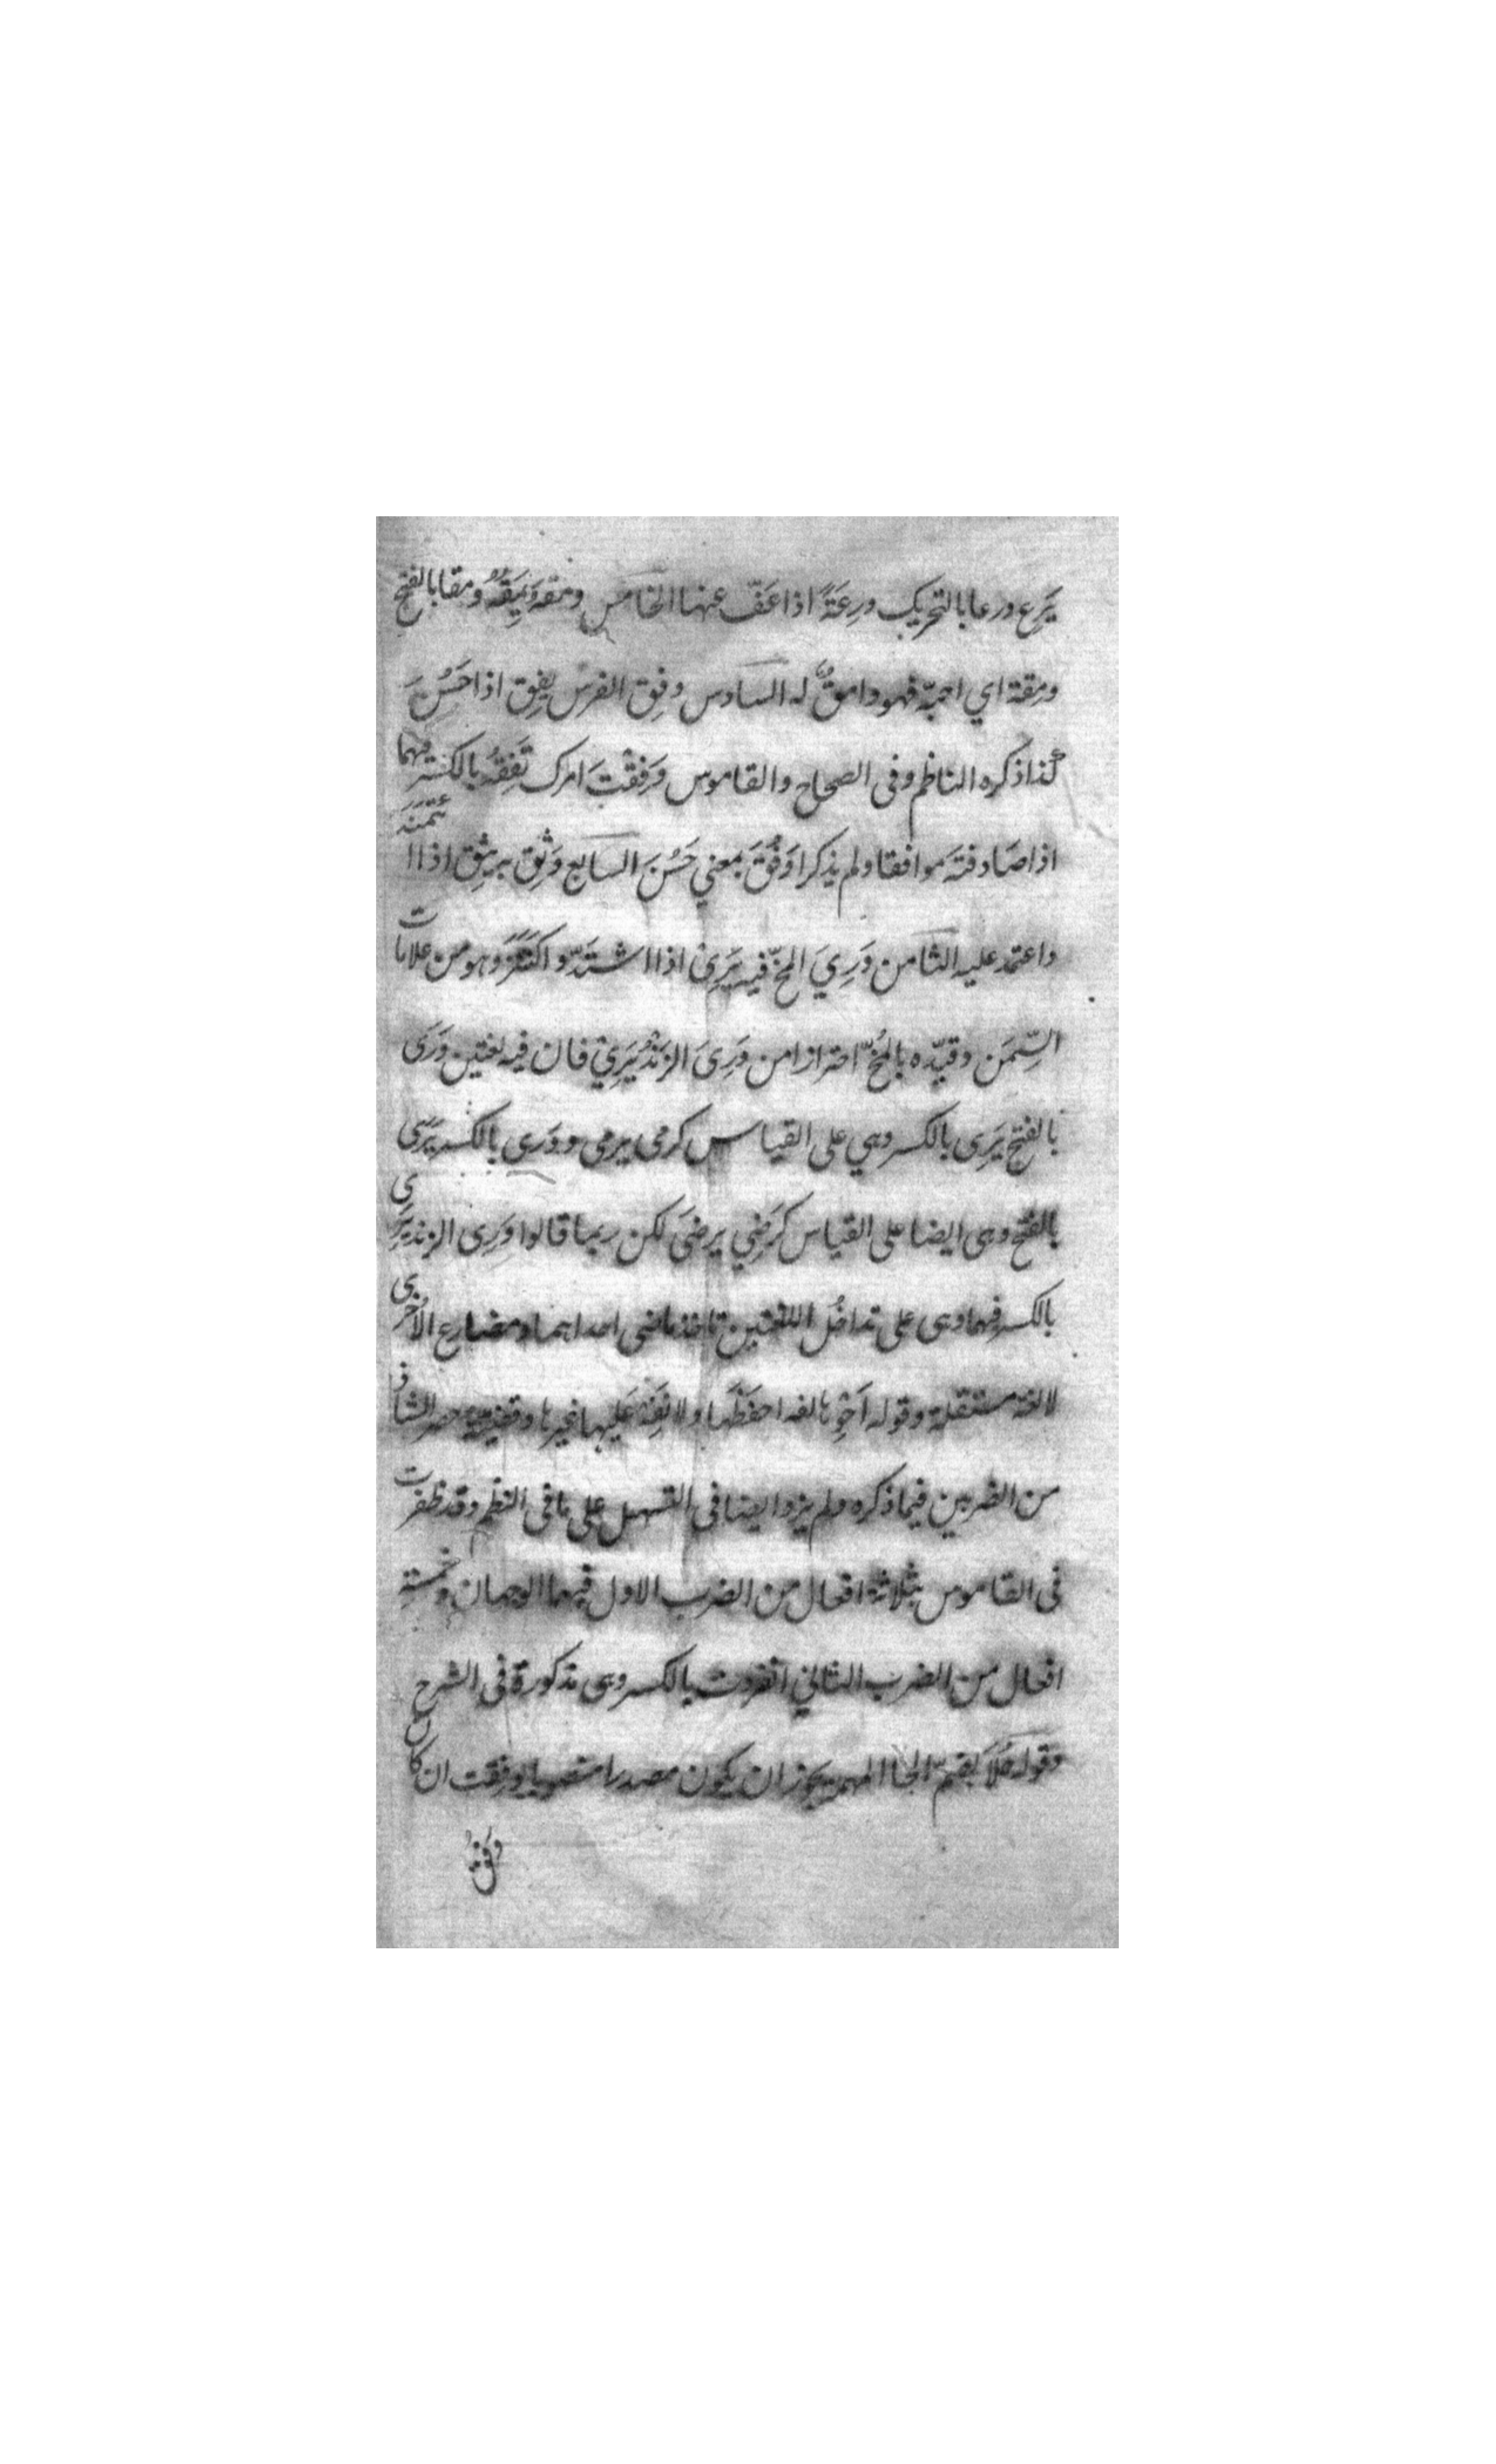 يَرِع ورعا بالتحريك ورِعَةً اذا عَفّ عنها الخامس ومقه يَمِقُهُ ومقا بالفتح
ومِقة اي احبّه فهو وامقٌ له السادس وفِق الفرس يفِق اذا حَسُنَ
كذا ذكره الناظم وفى الصحاح والقاموس وَفِقْتَ امرك تَفِقُه بالكسر فيهما
اذا صَادفتَه موافقا ولم يذكرا وَفُقَ بمعني حَسُنَ السابع وَثِق به يثِق اذا ائتمنَه
واعتمد عليه الثامن وَرِيَ المخّ فيه يَرِيْ اذا اشتَدّ واكتَنَزَ وهو من علامات
السِّمَن وقيّده بالمُخّ احترازا من وَرِىَ الزَنْدُ يَرِيْ فان فيه لغتين وَرَى
بالفتح يَرِى بالكسر وهي على القياس كرمى يرمى ووَرِى بالكسر يَرَى
بالفتح وهى ايضا على القياس كرَضِي يرضَى لكن ربما قالوا وَرِى الزند يَرِى
بالكسر فيهما وهى على تداخُل اللغتين تاخذ ماضى احداهما ومضارع الاُخرى
لا لغة مستقلة وقوله اَحْوِها لغه احفَظْها ولا تَقِسْ عَليها غيرها وقضيته حصر الشاذ
من الضربين فيما ذكره ولم يزد ايضا فى التسهيل على ما فى النظم وقد ظفرت
فى القاموس بثلاثة افعال من الضرب الاول فيها الوجهان وخمسة
افعال من الضرب الثاني انفردت بالكسر وهى مذكورة فى الشرح
وقوله حُلاَ بضمّ الحا المهملة يجوز ان يكون مصدرا منصوبا بوفِقت ان كان